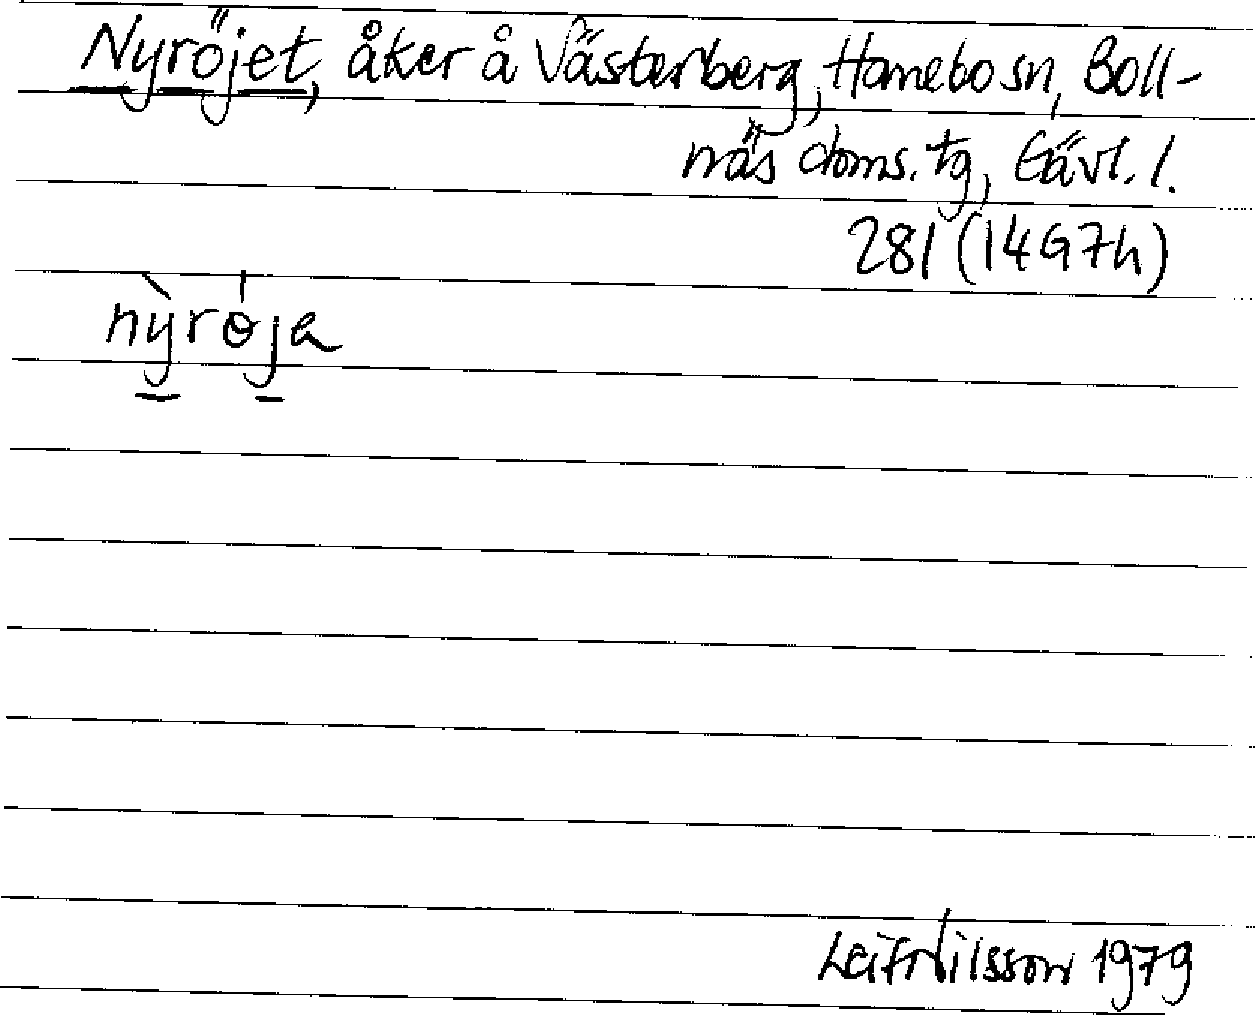 Nyröjet, åker å Västerberg, Hanebo sn, Boll-
näs doms. tg, Gävl. l.
281 (14G7h)
nỳrɵja
Leif Nilsson 1979